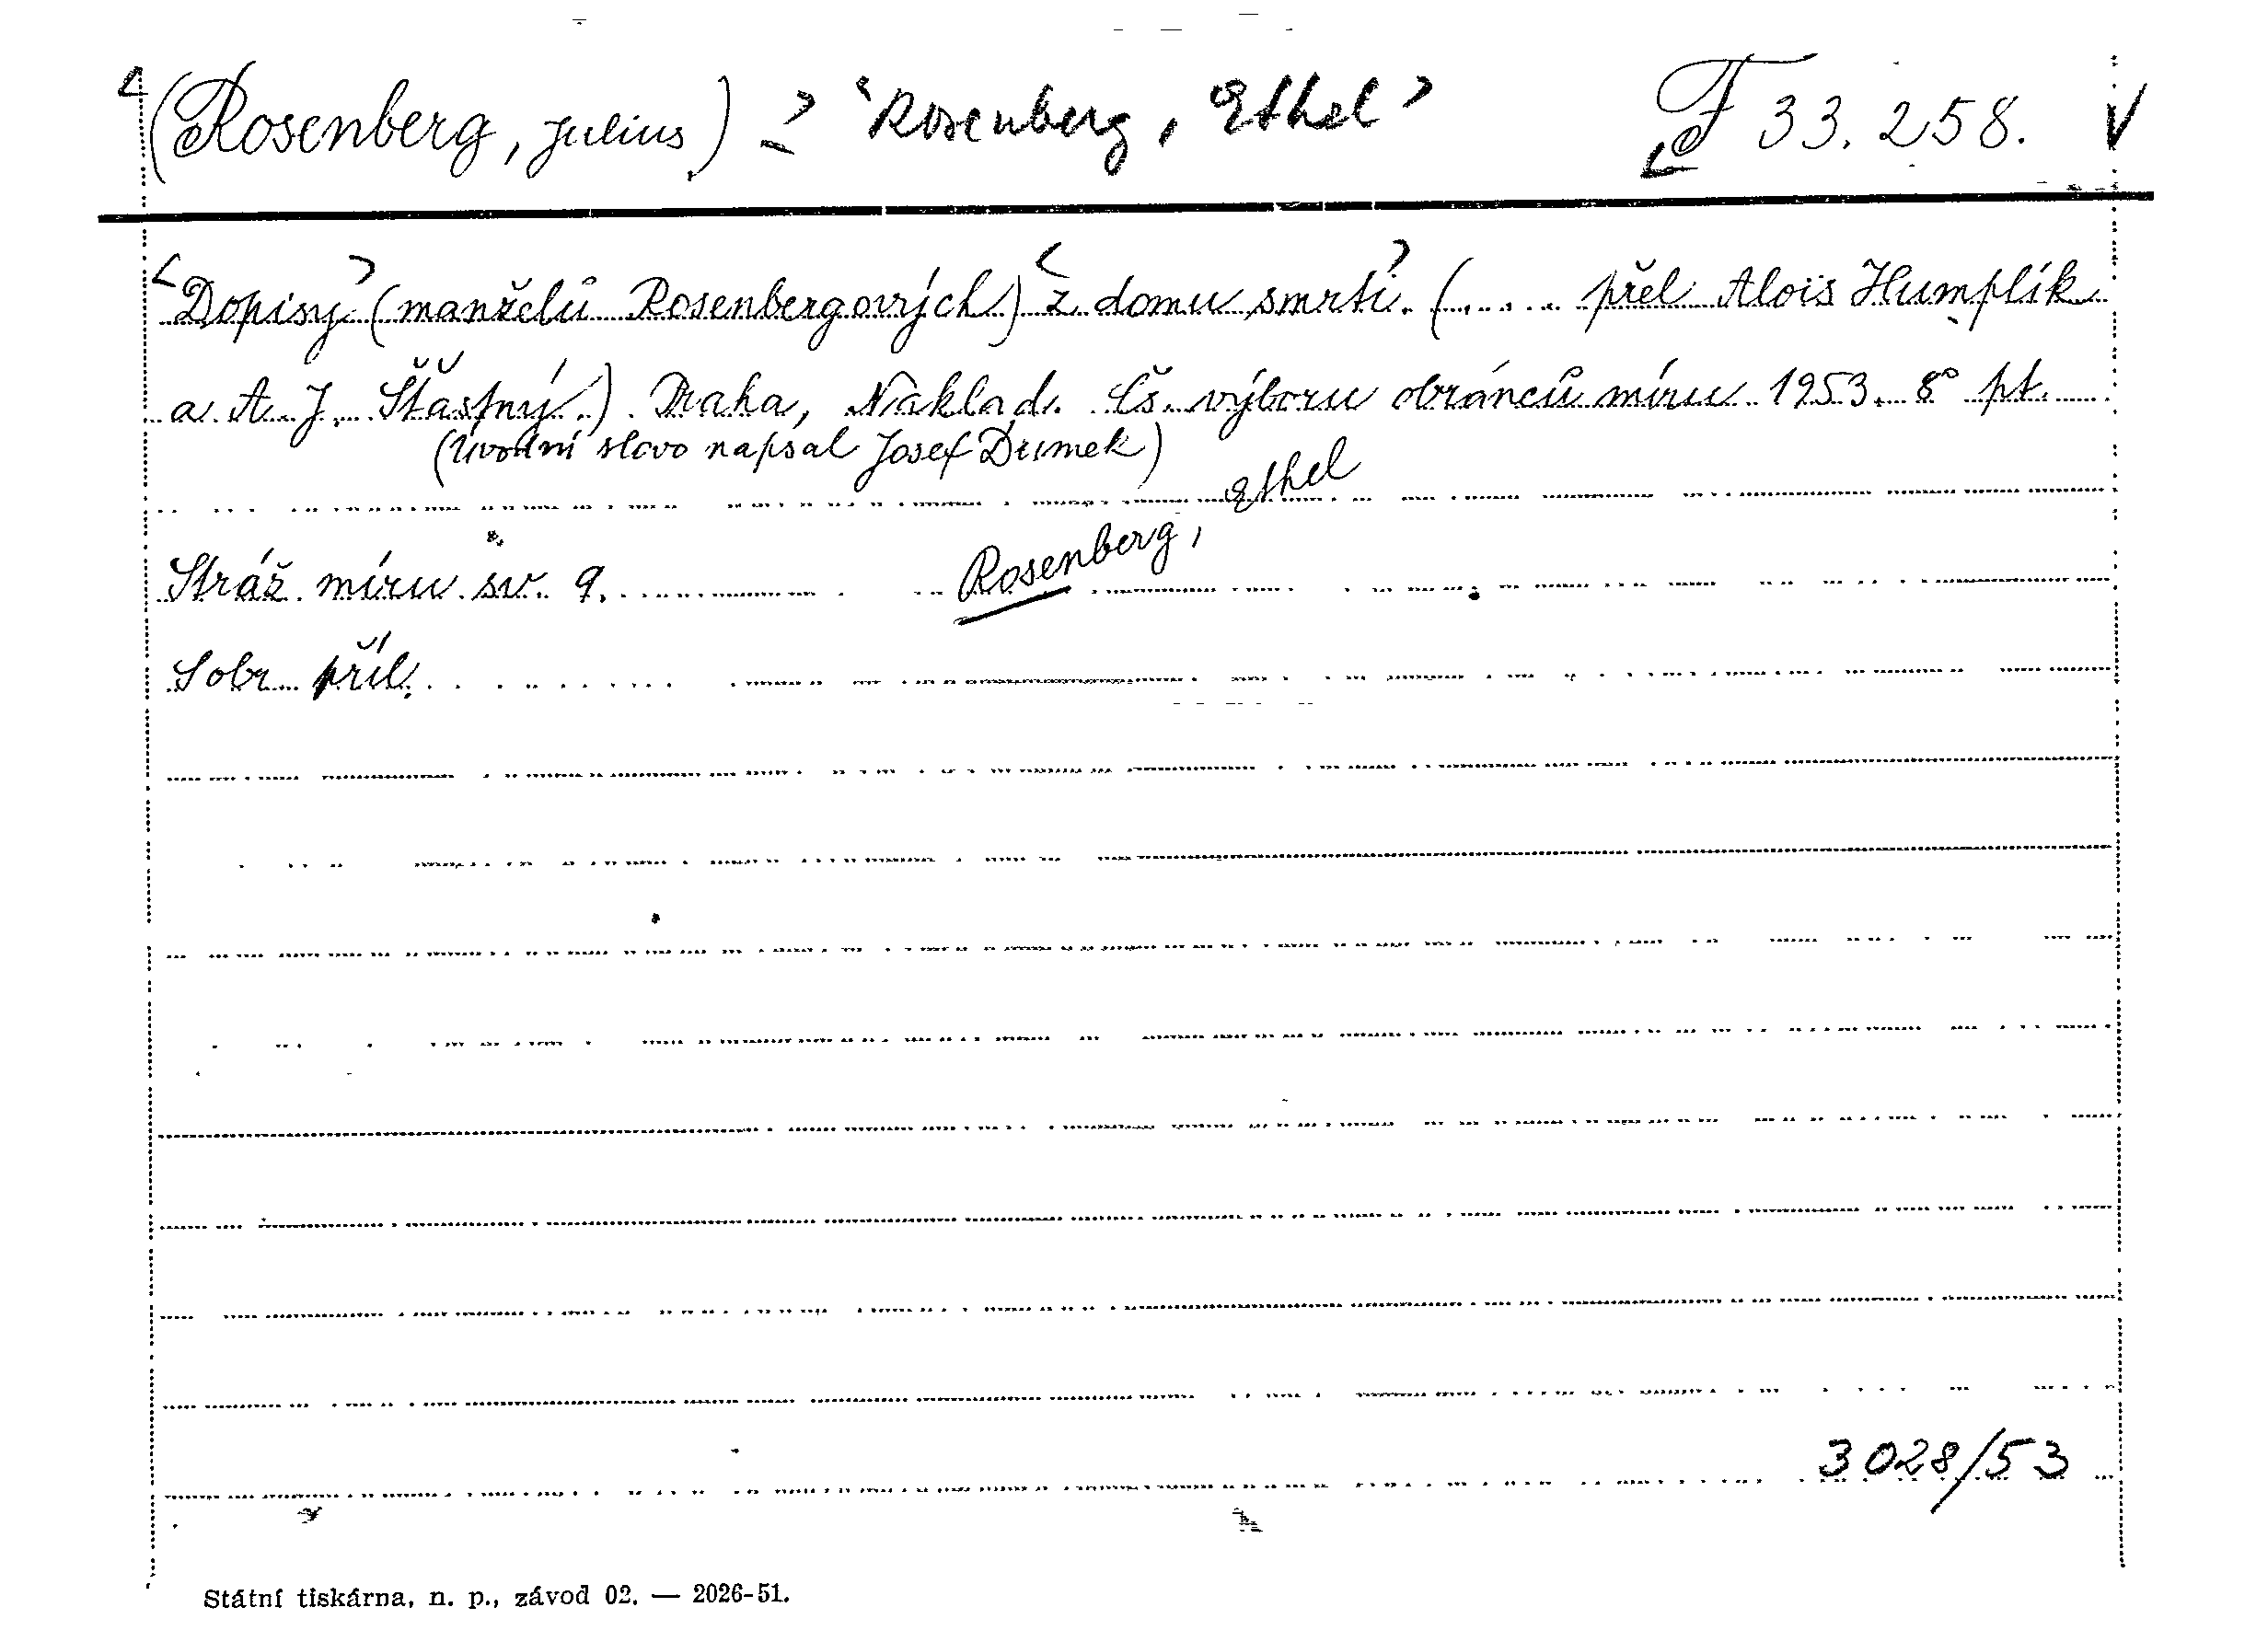 <(Rosenberg, Julius)> <Rosenberg, Ethel> F 33.258. V
<Dopisy> (manželů Rosenbergových) <z domu smrti>. (..... přel Alois Humplík
a A. J. Šťastný.) Praha, Náklad. Čs. výboru obránců míru 1953. 8° pt.
(Úvodní slovo napsal Josef Dumek)
Rosenberg, Ethel
Stráž míru sv. 9.
Sobr. příl.
3028/53
Státní tiskárna, n. p., závod 02. — 2026-51.